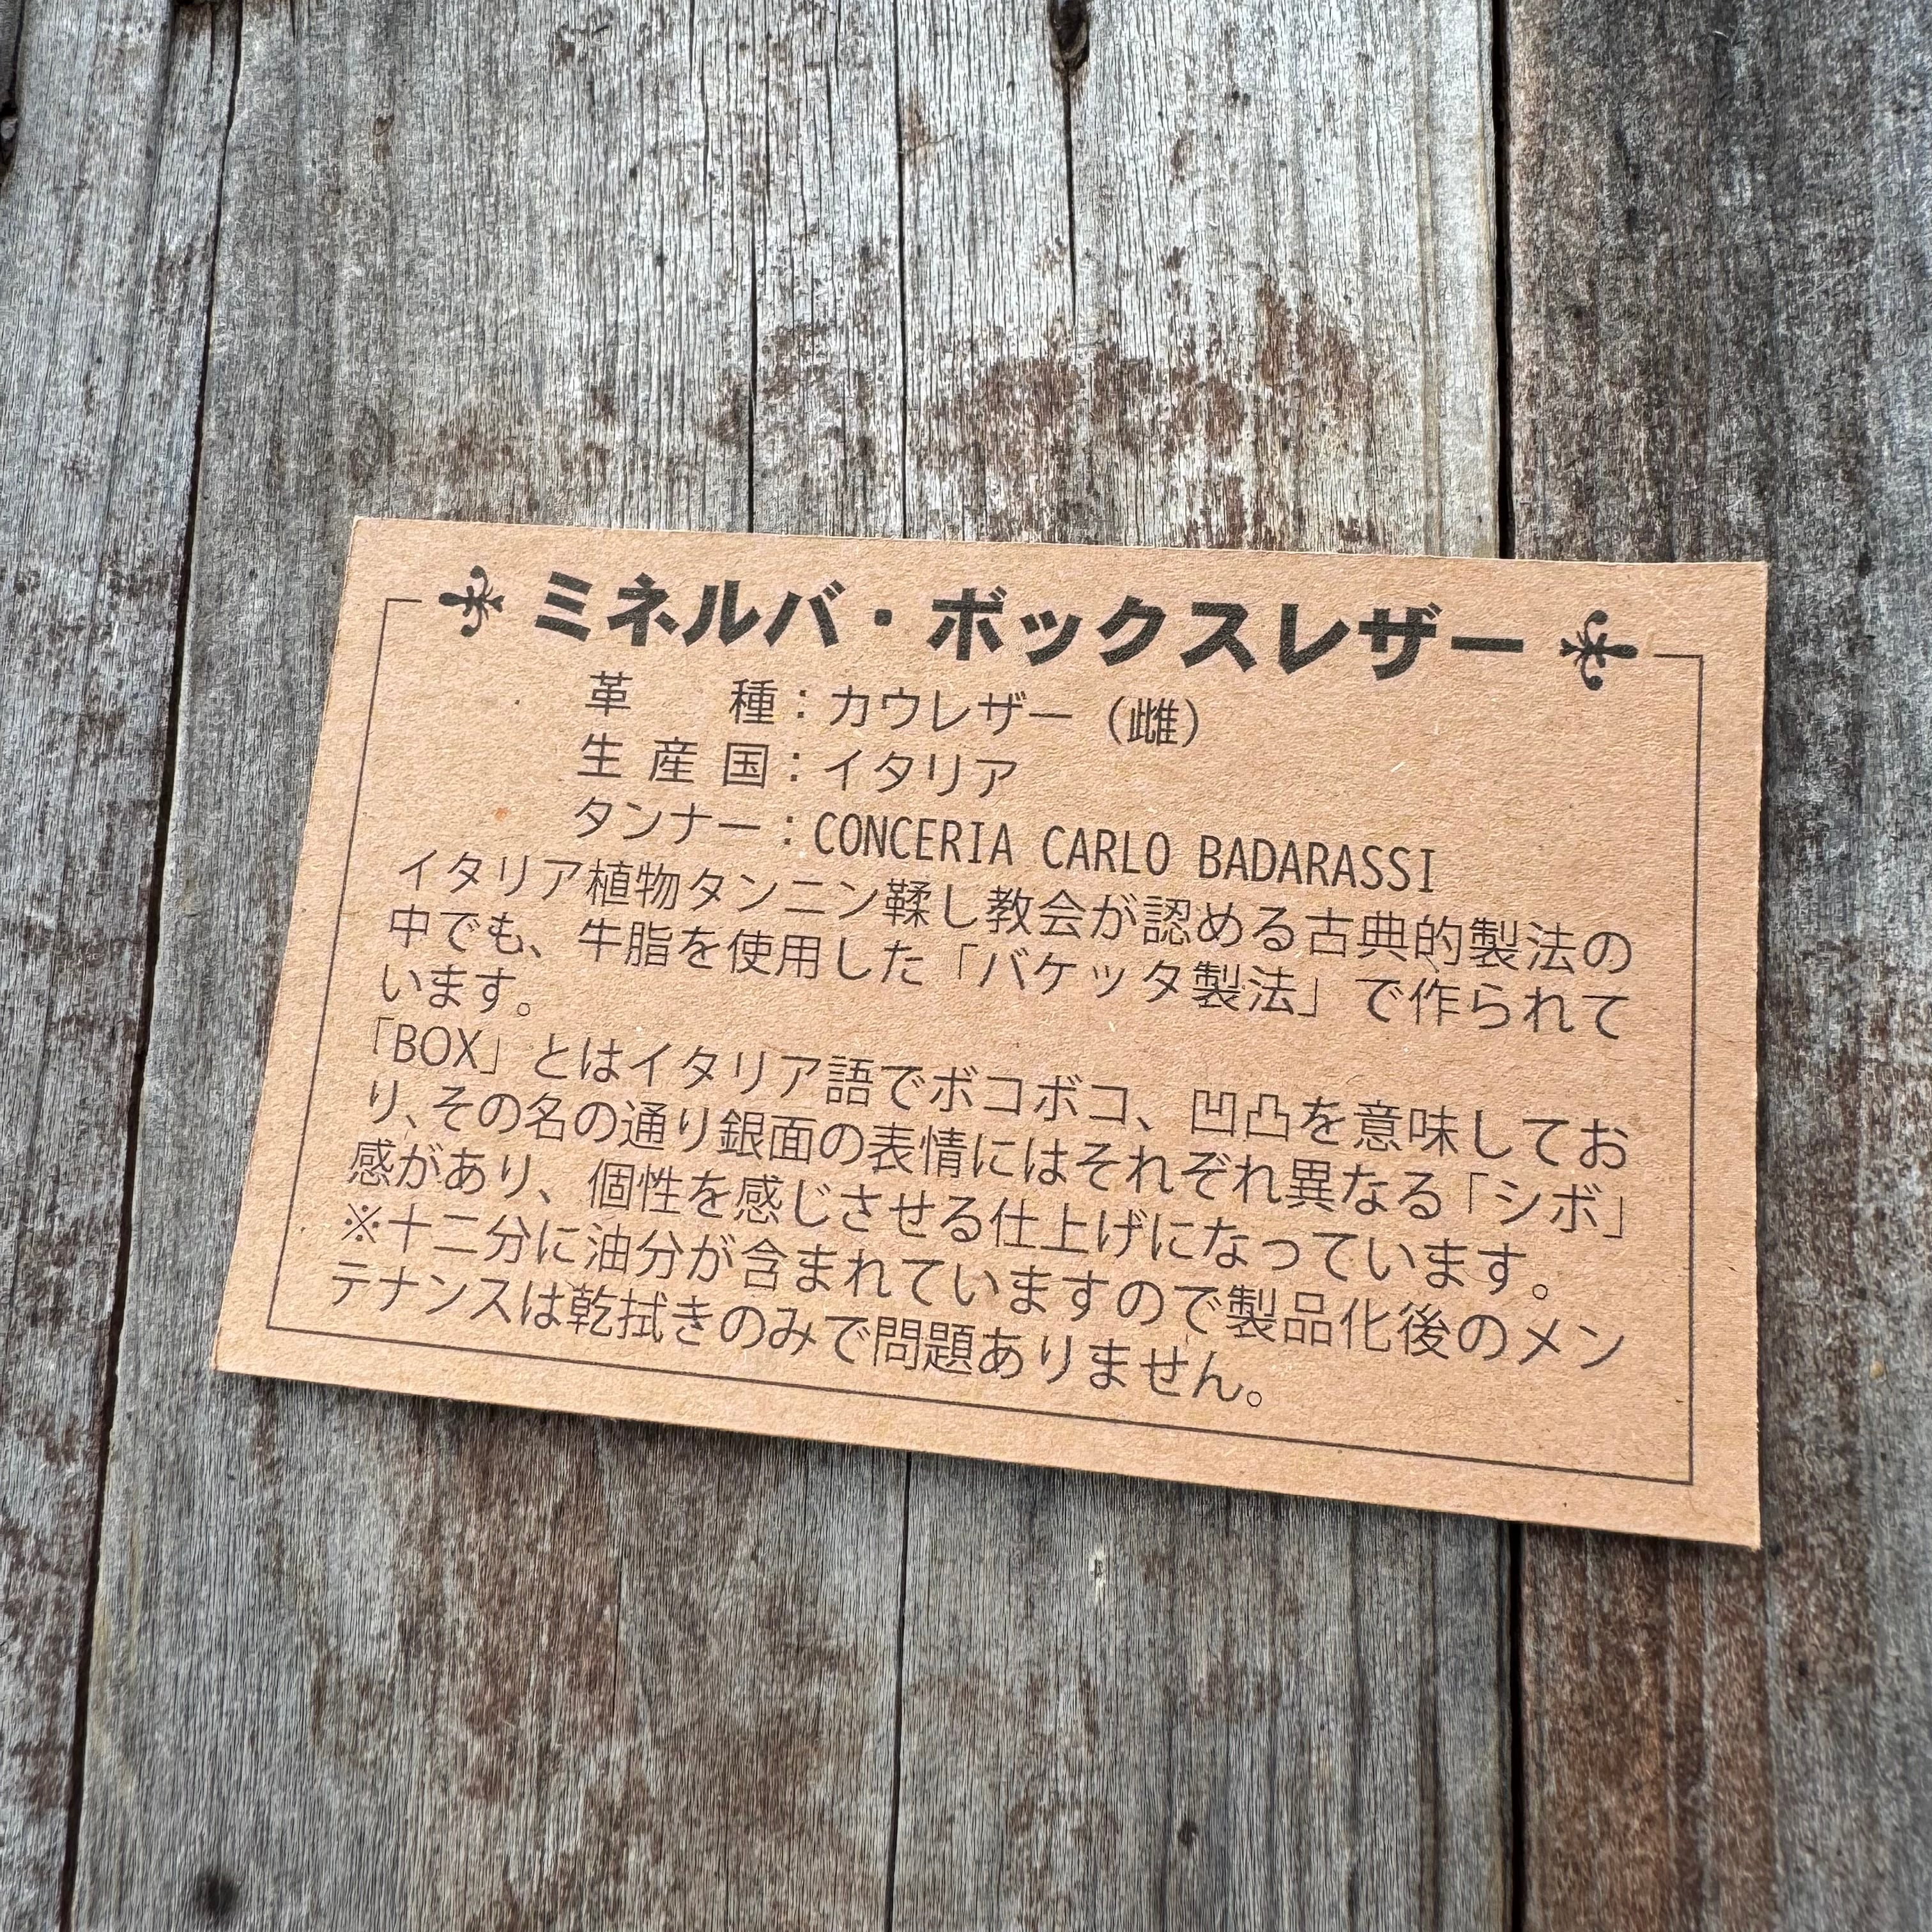 ミネルバ・ボックスレザー
革　　種：カウレザー（雌）
生 産 国：イタリア
タンナー：CONCERIA CARLO BADARASSI
イタリア植物タンニン鞣し教会が認める古典的製法の
中でも、牛脂を使用した「バケッタ製法」で作られて
います。
「BOX」とはイタリア語でボコボコ、凹凸を意味してお
り、その名の通り銀面の表情にはそれぞれ異なる「シボ」
感があり、個性を感じさせる仕上げになっています。
※十二分に油分が含まれていますので製品化後のメン
テナンスは乾拭きのみで問題ありません。